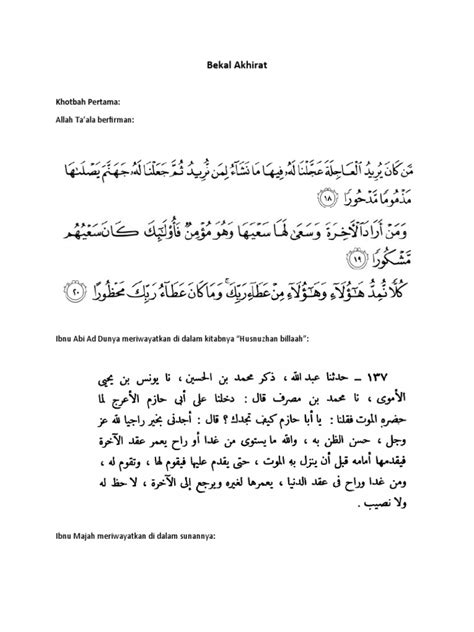 Bekal Akhirat
Khotbah Pertama:
Allah Ta'ala berfirman:
مَّن كَانَ يُرِيدُ الْعَاجِلَةَ عَجَّلْنَا لَهُ فِيهَا مَا نَشَاءُ لِمَن نُّرِيدُ ثُمَّ جَعَلْنَا لَهُ جَهَنَّمَ يَصْلَاهَا
مَذْمُومًا مَّدْحُورًا ١٨
وَمَنْ أَرَادَ الْآخِرَةَ وَسَعَىٰ لَهَا سَعْيَهَا وَهُوَ مُؤْمِنٌ فَأُولَٰئِكَ كَانَ سَعْيُهُم
مَّشْكُورًا ١٩
كُلًّا نُّمِدُّ هَٰؤُلَاءِ وَهَٰؤُلَاءِ مِنْ عَطَاءِ رَبِّكَ ۚ وَمَا كَانَ عَطَاءُ رَبِّكَ مَحْظُورًا ٢٠
Ibnu Abi Ad Dunya meriwayatkan di dalam kitabnya "Husnuzhan billaah":
١٣٧ – حدثنا عبد الله ، ذكر محمد بن الحسين ، نا يونس بن يحيى
الأموى ، نا محمد بن مصرف قال : دخلنا على أبي حازم الأعرج لما
حضره الموت فقلنا : يا أبا حازم كيف تجدك ؟ قال : أجدنى بخير راجيا لله عز
وجل ، حسن الظن به ، والله ما يستوى من غدا أو راح يعمر عقد الآخرة
فيقدمها أمامه قبل أن ينزل به الموت ، حتى يقدم عليها فيقوم لها ، وتقوم له ،
ومن غدا وراح فى عقد الدنيا ، يعمرها لغيره ويرجع إلى الآخرة ، لا حظ له
ولا نصيب .
Ibnu Majah meriwayatkan di dalam sunannya: